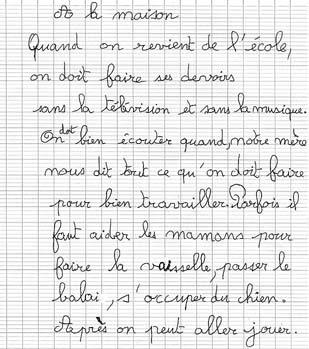 A la maison
Quand on revient de l'école,
on doit faire ses devoirs
sans la télévision et sans la musique.
On dot bien écouter quand, notre mère
nous dit tout ce qu'on doit faire
pour bien travailler. Parfois il
faut aider les mamans pour
faire la vaisselle, passer le
balai, s'occuper du chien.
Après on peut aller jouer.